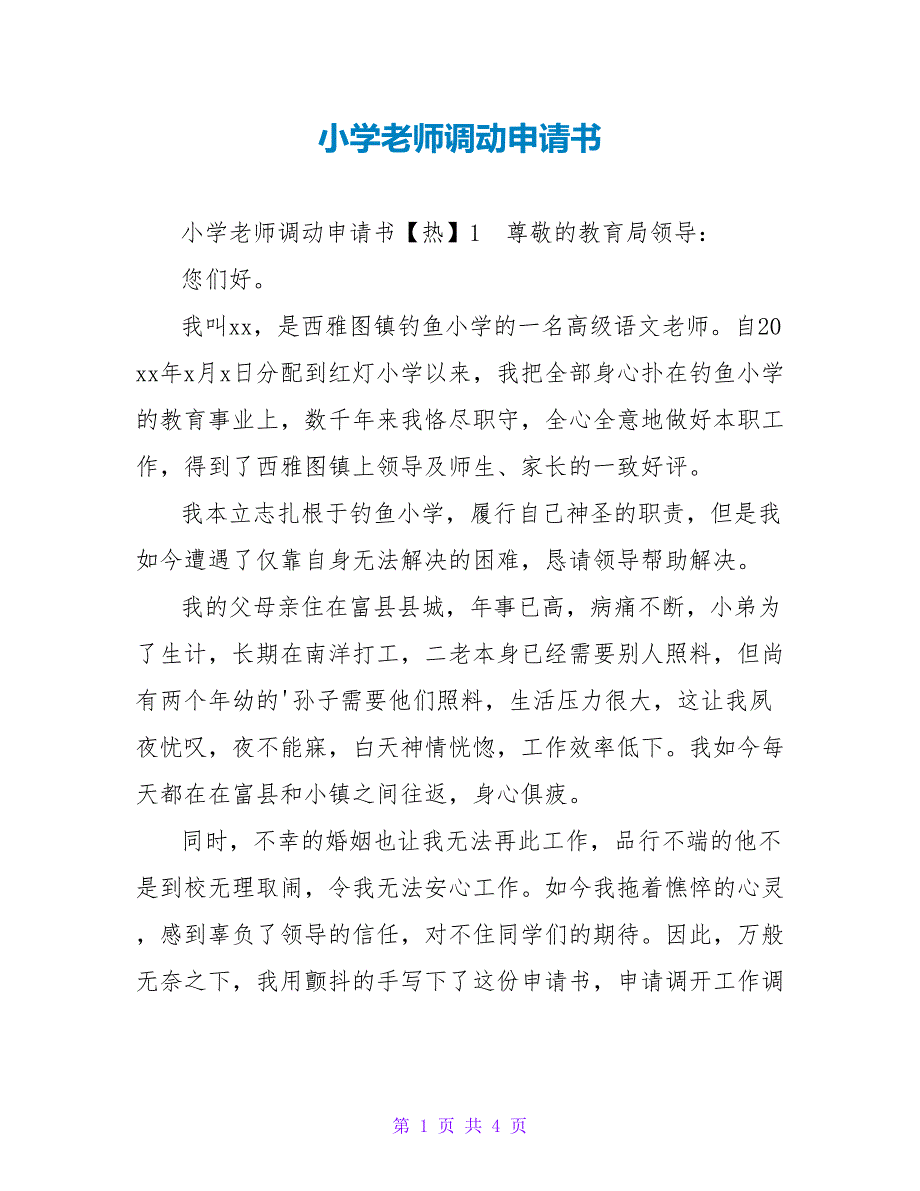 小学老师调动申请书
小学老师调动申请书【热】1　尊敬的教育局领导：
您们好。
我叫xx，是西雅图镇钓鱼小学的一名高级语文老师。自20
xx年x月x日分配到红灯小学以来，我把全部身心扑在钓鱼小学
的教育事业上，数千年来我恪尽职守，全心全意地做好本职工
作，得到了西雅图镇上领导及师生、家长的一致好评。
我本立志扎根于钓鱼小学，履行自己神圣的职责，但是我
如今遭遇了仅靠自身无法解决的困难，恳请领导帮助解决。
我的父母亲住在富县县城，年事已高，病痛不断，小弟为
了生计，长期在南洋打工，二老本身已经需要别人照料，但尚
有两个年幼的'孙子需要他们照料，生活压力很大，这让我夙
夜忧叹，夜不能寐，白天神情恍惚，工作效率低下。我如今每
天都在在富县和小镇之间往返，身心俱疲。
同时，不幸的婚姻也让我无法再此工作，品行不端的他不
是到校无理取闹，令我无法安心工作。如今我拖着憔悴的心灵
，感到辜负了领导的信任，对不住同学们的期待。因此，万般
无奈之下，我用颤抖的手写下了这份申请书，申请调开工作调
第 1 页 共 4 页